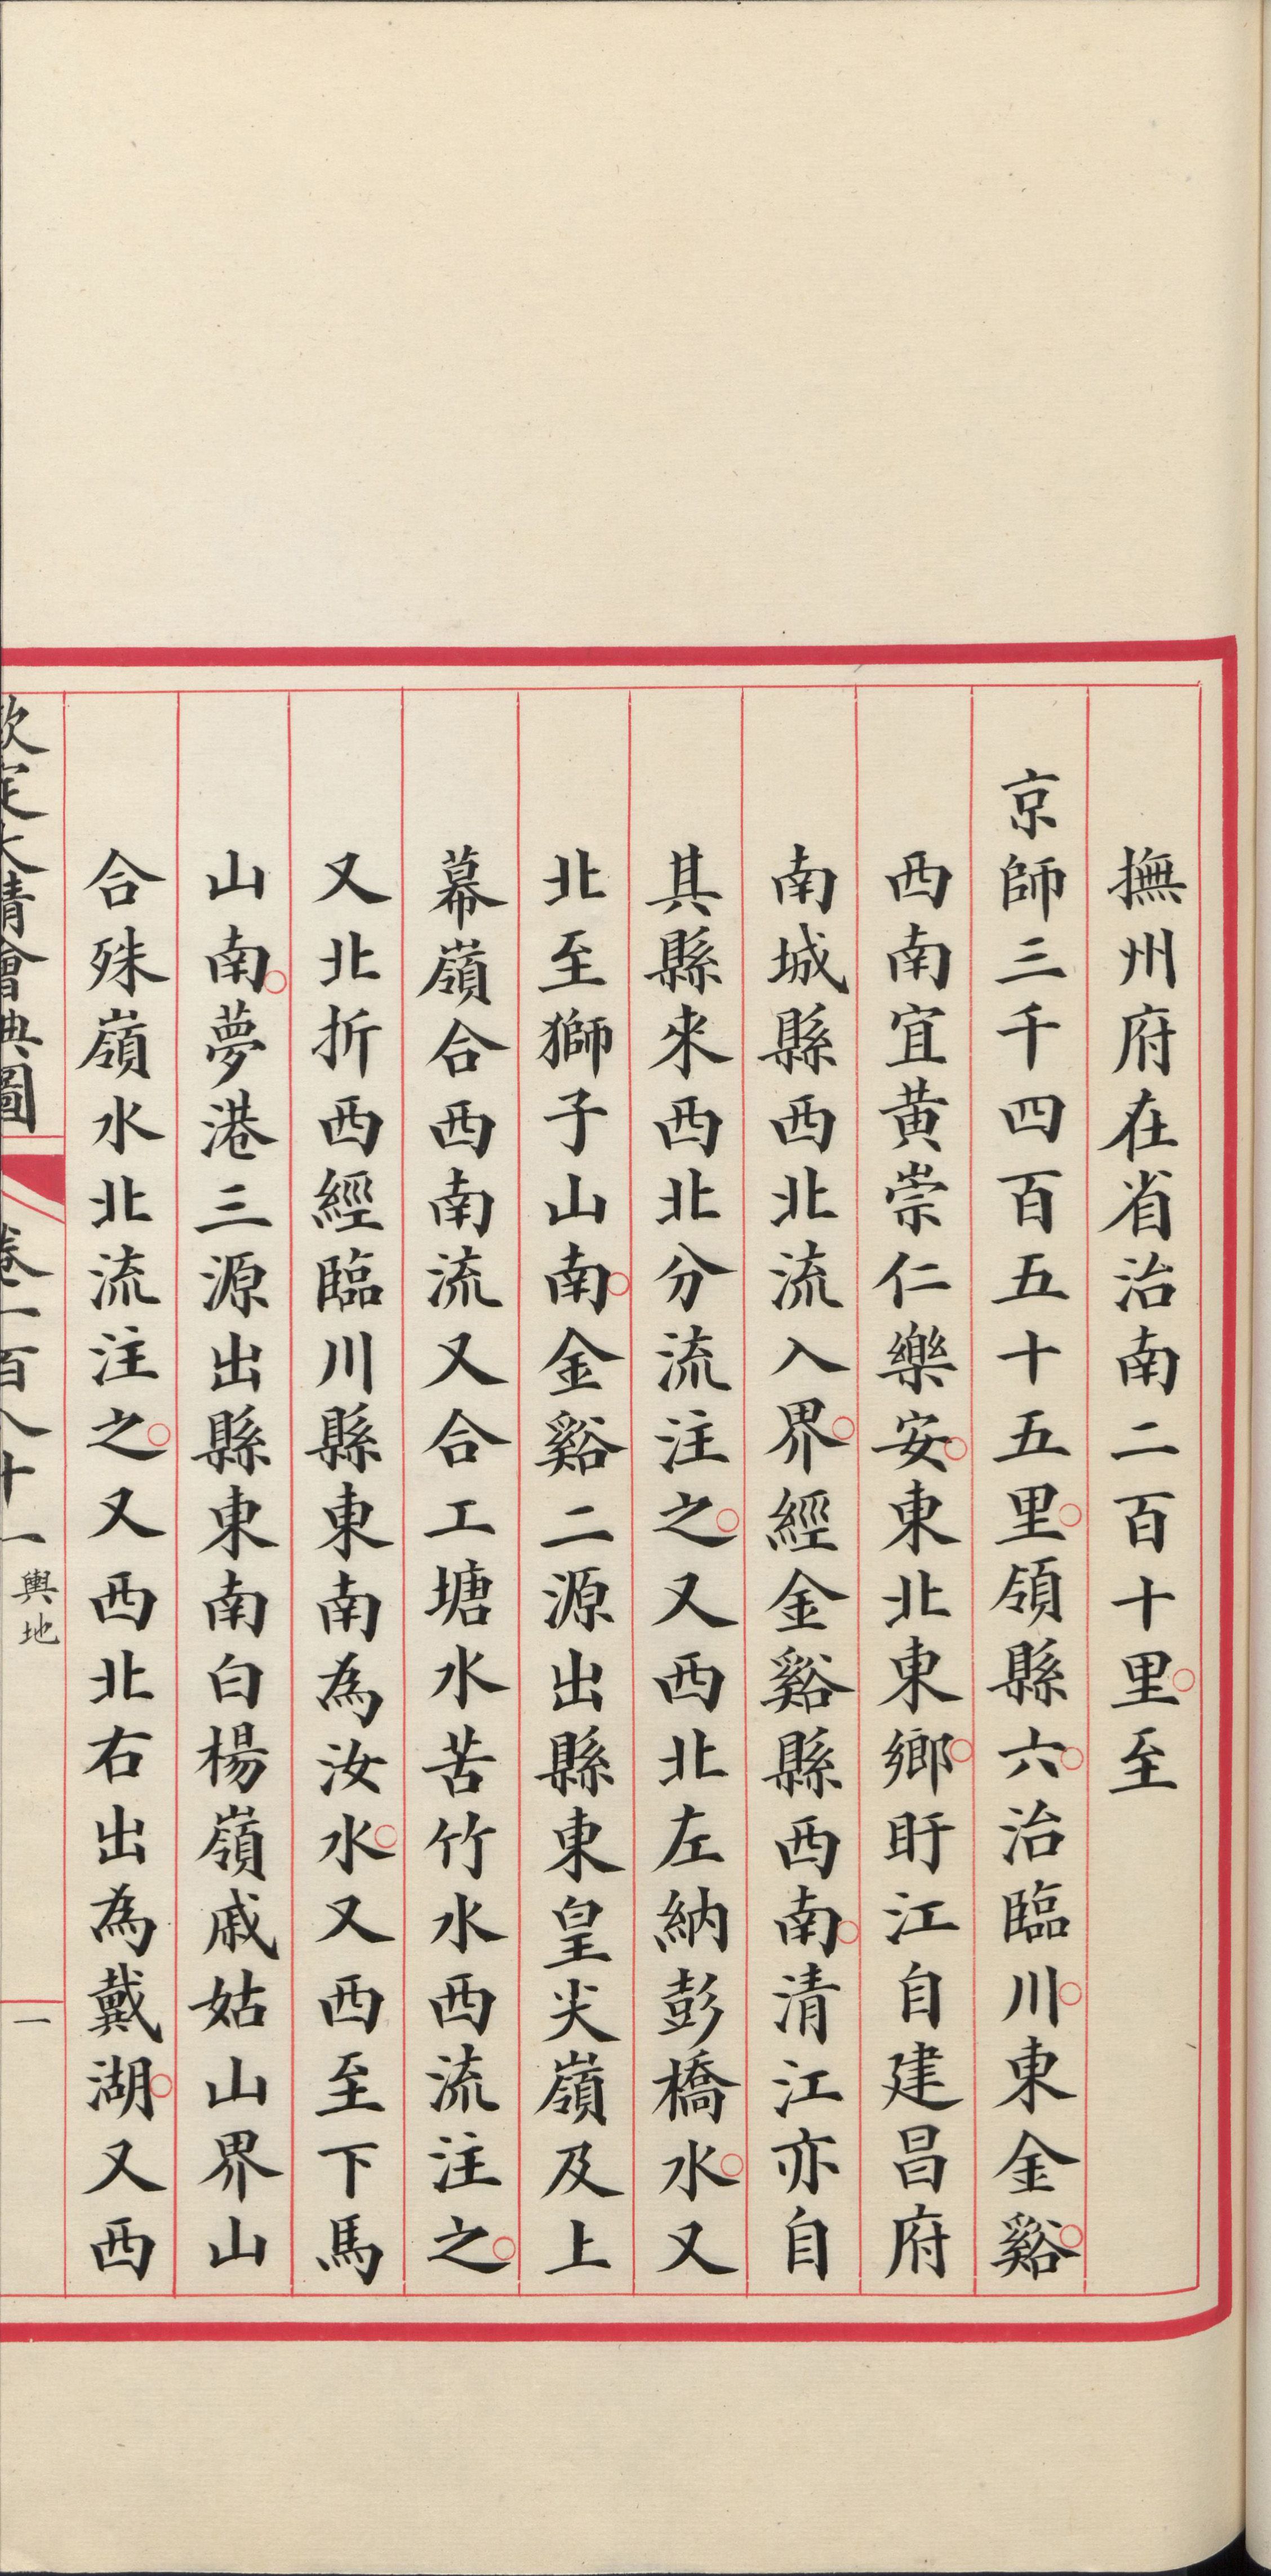 撫州府在省治南二百十里至
京師三千四百五十五里領縣六治臨川東金谿
西南宜黃崇仁樂安東北東鄉盱江自建昌府
南城縣西北流入界經金谿縣西南清江亦自
其縣來西北分流注之又西北左納彭橋水又
北至獅子山南金谿二源出縣東皇尖嶺及上
幕嶺合西南流又合工塘水苦竹水西流注之
又北折西經臨川縣東南為汝水又西至下馬
山南夢港三源出縣東南白楊嶺戚姑山界山
合殊嶺水北流注之又西北右出為戴湖又西
欽定大清會典圖 卷一百八十一 輿地 一